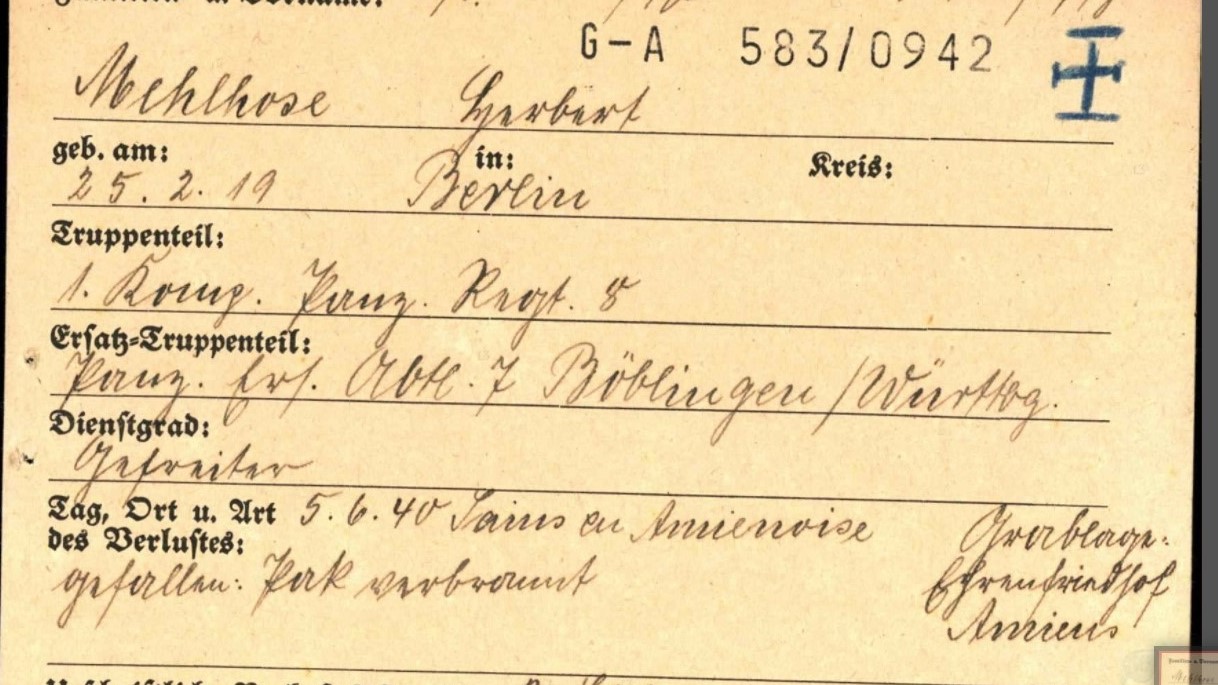 Familien- u. Vorname:
G-A 583/0942
Mehlhose Herbert
geb. am: in: Kreis:
25. 2. 19 Berlin
Truppenteil:
1. Komp. Panz. Regt. 8
Ersatz-Truppenteil:
Panz. Ers. Abtl. 7 Böblingen /Württbg.
Dienstgrad:
Gefreiter
Tag, Ort u. Art 5. 6. 40 Sains en Amienoise
des Verlustes:
gefallen: Pak verbrannt
Grablage:
Ehrenfriedhof
Amiens